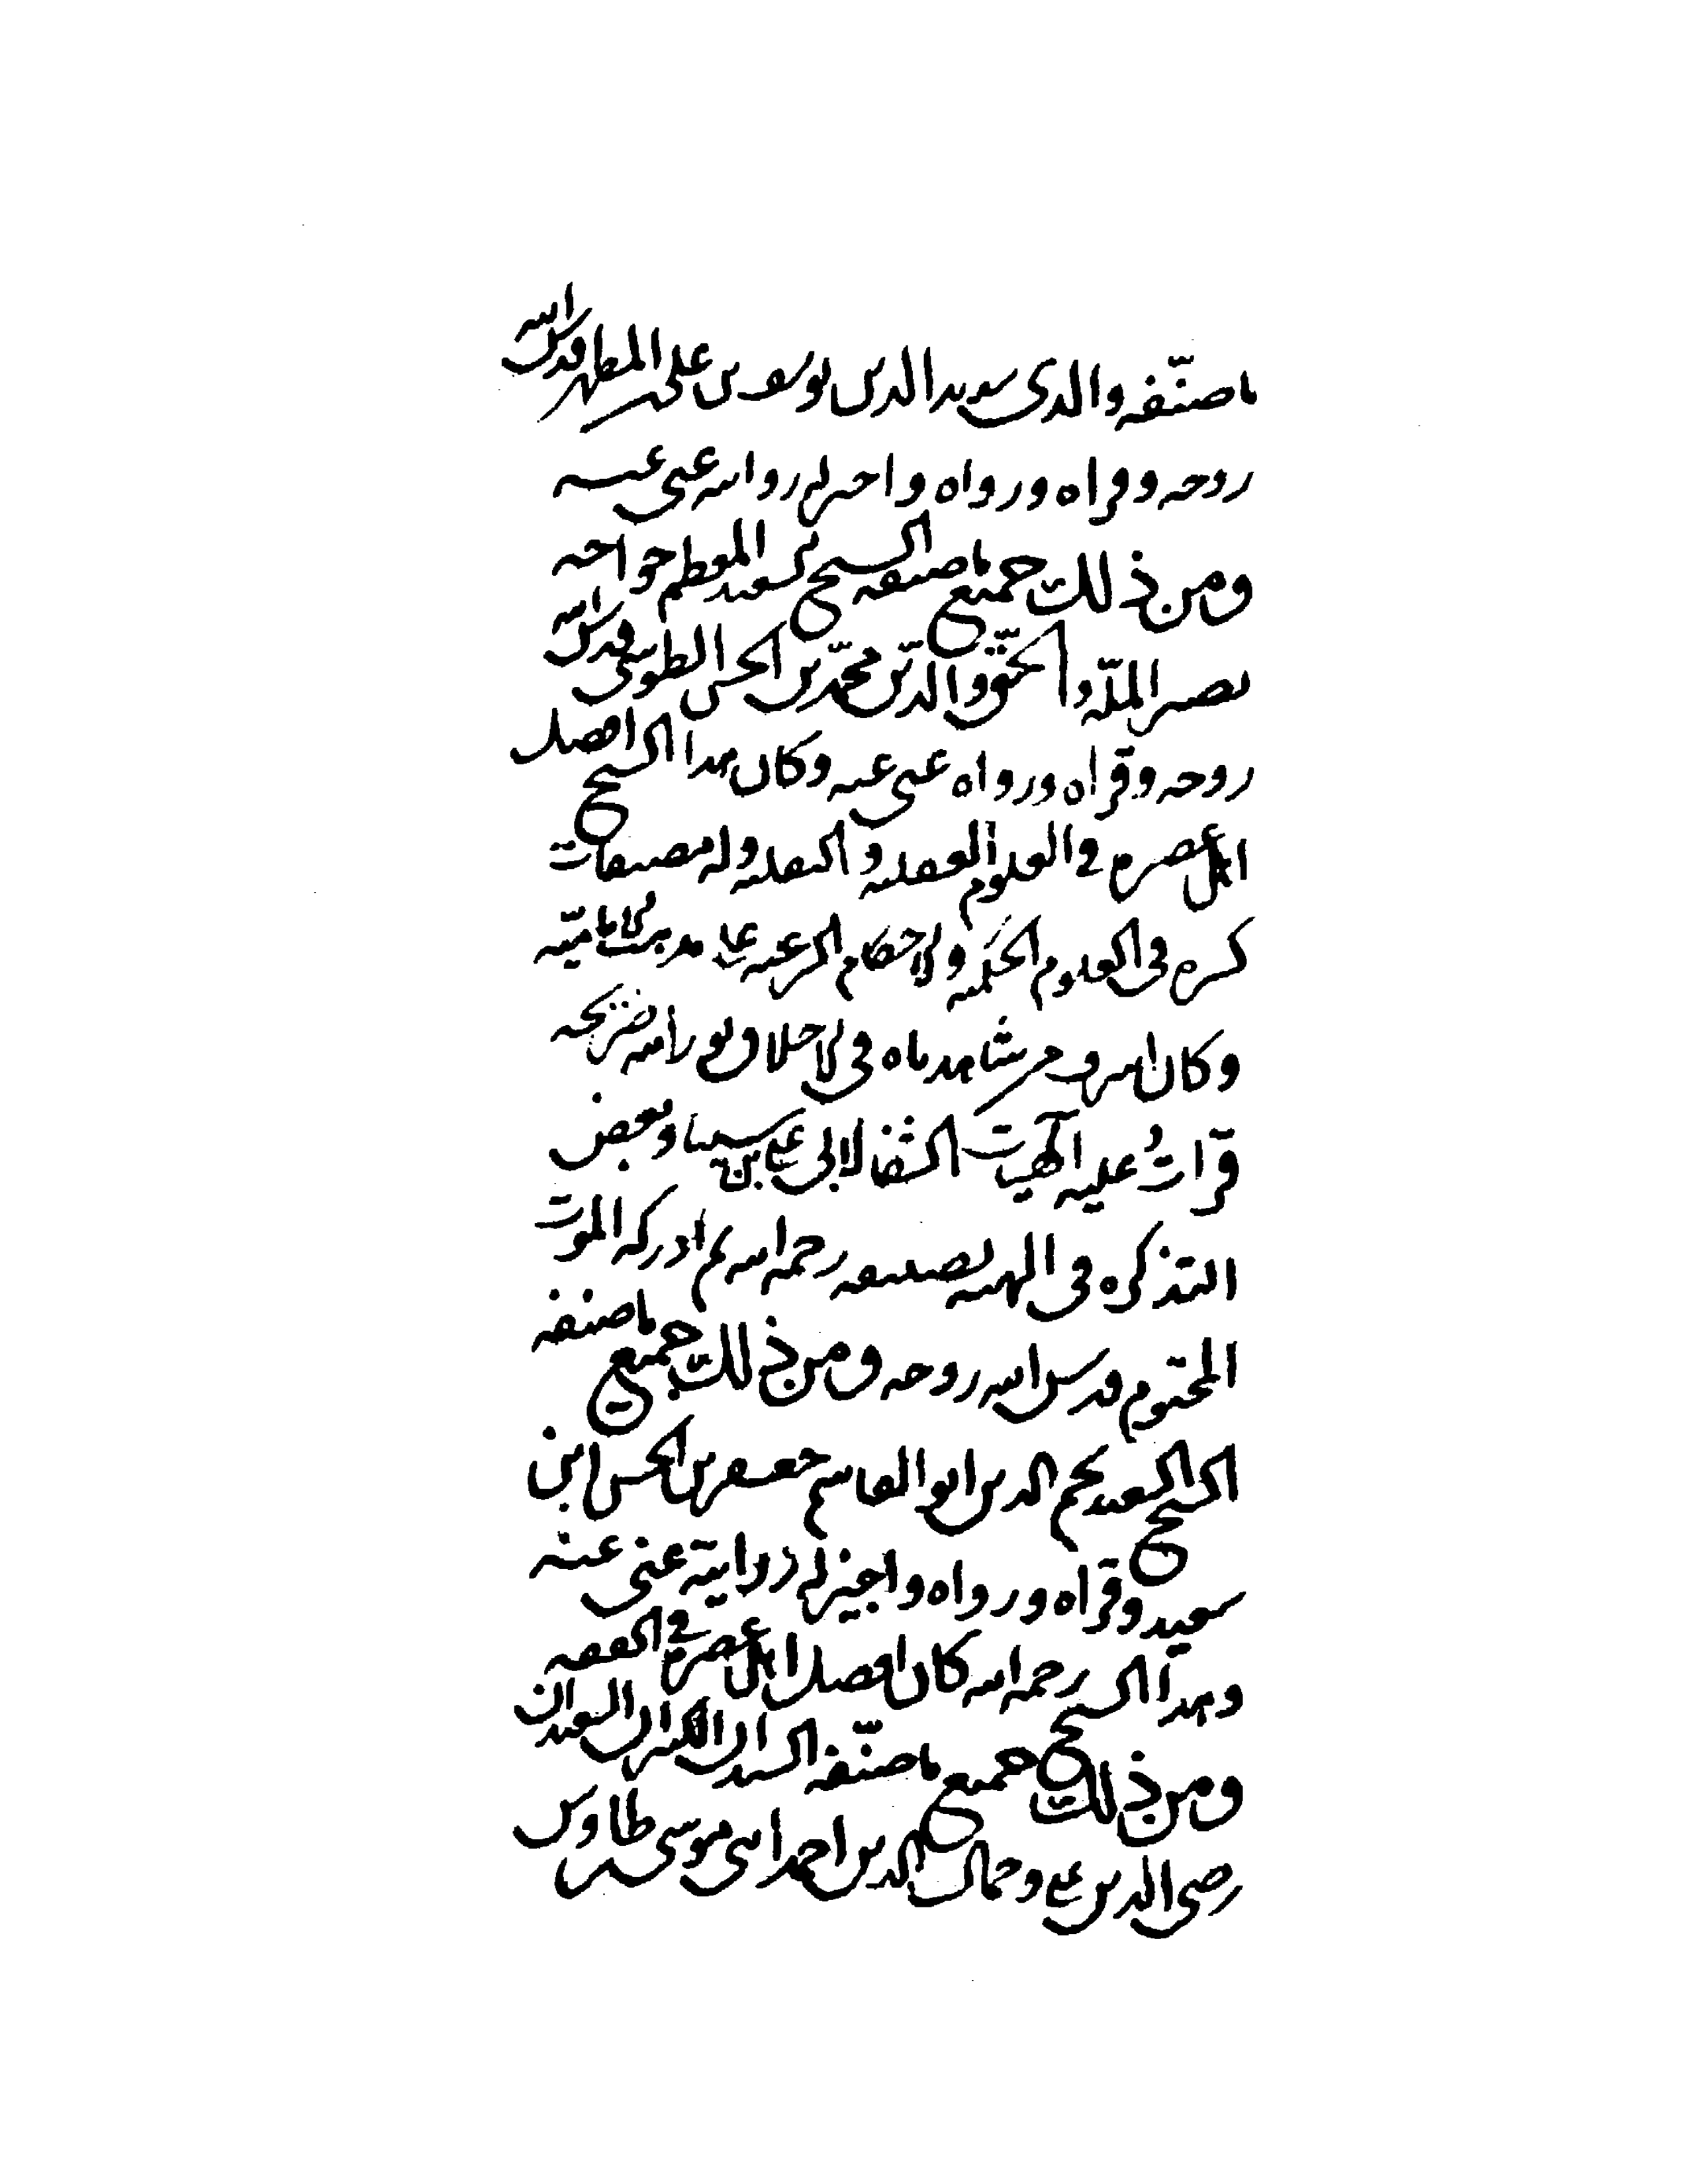 ما صنّفه والدى سديد الدين يوسف بن على المطهر قدس الله
روحه وقراه ورواه واجيز له روايته عنى عنه
ومن ذلك جميع ما صنفه الشيخ السعيد المعظم خواجه
نصير الملّة والحقّ والدّين محمّد بن الحسن الطوسى قدس الله
روحه وقراه ورواه عنى عنه وكان هذا الشيخ افضل
اهل عصره فى العلوم العقليه والنقليه وله مصنفات
كثيره فى العلوم الحكميه والاحكام الشرعيه على مذهب الاماميّه
وكان اشرف من شاهدناه فى الاخلاق نور الله ضريحه
قراتُ عليه الهيات الشفا لابى على بن سينا وبعض
التذكره فى الهيه تصنيفه رحمه الله ثم ادركه الموت
المحتوم قدس الله روحه ومن ذلك جميع ما صنفه
الشيخ السعيد نجم الدين ابو القاسم جعفر بن الحسن ابن
سعيد وقراه ورواه واجيز له روايته عنى عنه
وهذا الشيخ رحمه الله كان افضل اهل عصره فى الفقه
ومن ذلك جميع ما صنّفه السيدان الكبيران السعيدان
رضى الدين على وجمال الدين احمد ابنى موسى طاوس